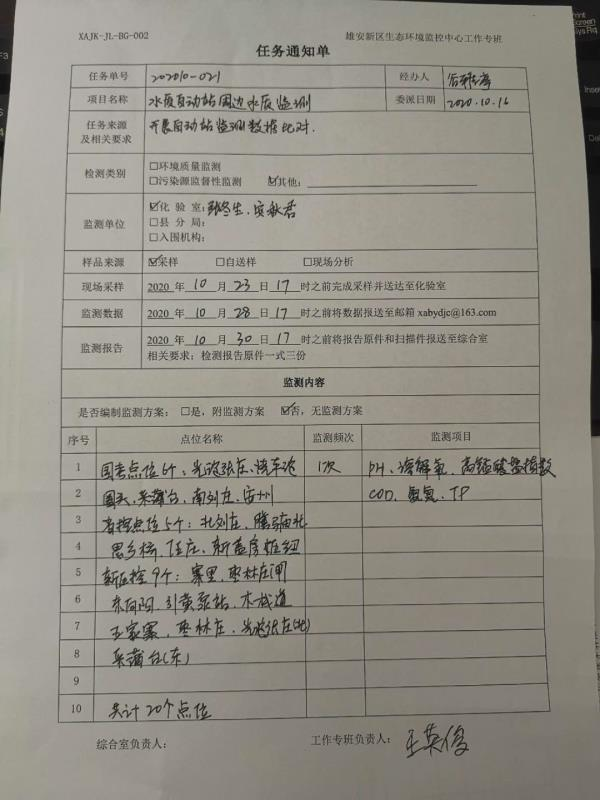 XAJK-JL-BG-002 雄安新区生态环境监控中心工作专班
任务通知单
任务单号 202010-021 经办人
项目名称 水质自动站周边水质监测 委派日期 2020.10.16
任务来源及相关要求 开展自动站监测数据比对.
检测类别 □环境质量监测
□污染源监督性监测 ☑其他:
监测单位 ☑化 验 室: 张冬生、安秋君
□县 分 局:
□入围机构:
样品来源 ☑采样 □自送样 □现场分析
现场采样 2020 年 10 月 23 日 17 时之前完成采样并送达至化验室
监测数据 2020 年 10 月 28 日 17 时之前将数据报送至邮箱 xabydjc@163.com
监测报告 2020 年 10 月 30 日 17 时之前将报告原件和扫描件报送至综合室
相关要求: 检测报告原件一式三份
监测内容
是否编制监测方案: □是, 附监测方案 ☑否, 无监测方案
序号 点位名称 监测频次 监测项目
1 国考点位6个: 光淀张庄、烧车淀 1次 PH、溶解氧、高锰酸盐指数
2 圈头、采蒲台、南刘庄、安州 COD、氨氮、TP
3 省控点位5个: 北刘庄、鹏
4 思乡桥、任庄、新盖房枢纽
5 新区控9个: 寨里、枣林庄闸
6 东向阳、引黄泵站、木栈道
7 王家寨、枣林庄、光淀张庄(北)
8 采蒲台(东)
9
10 共计20个点位
综合室负责人: 工作专班负责人: 王英俊